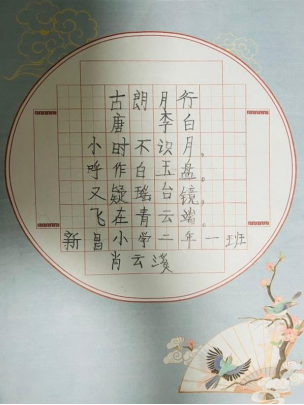 古朗月行
唐 李白
小时不识月。
呼作白玉盘。
又疑瑶台镜,
飞在青云端。
新昌小学二年一班
肖云漫